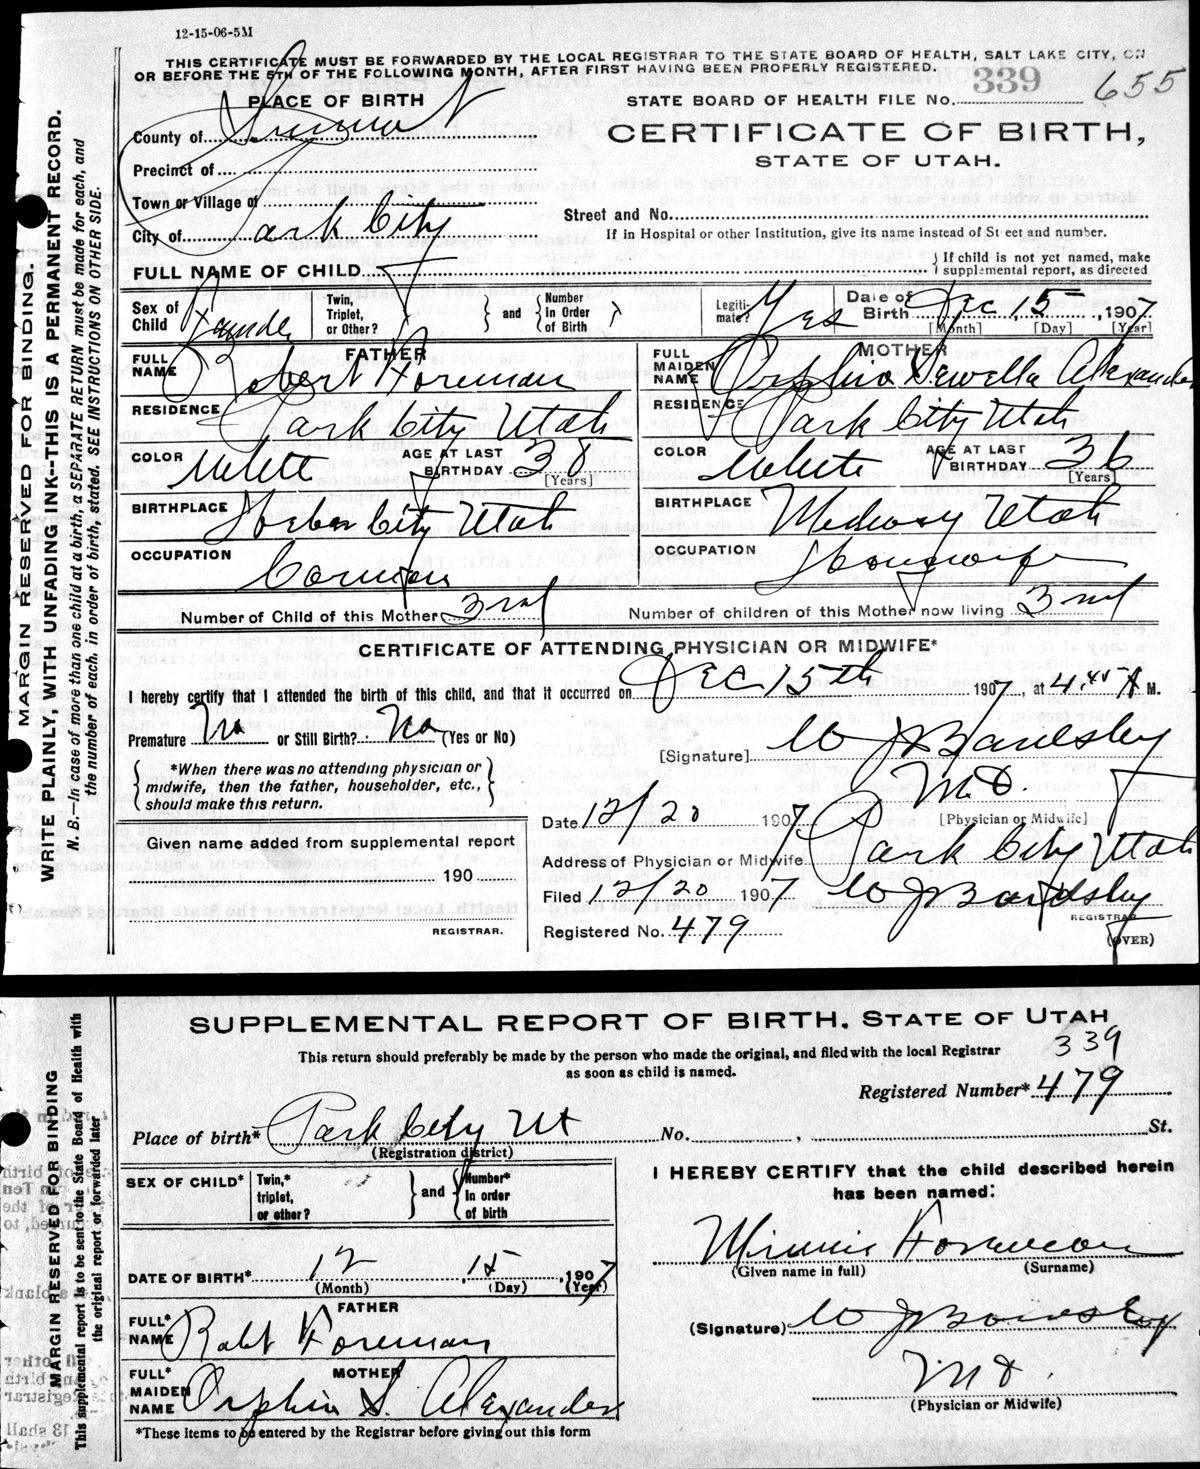 12-15-06-5M
THIS CERTIFICATE MUST BE FORWARDED BY THE LOCAL REGISTRAR TO THE STATE BOARD OF HEALTH, SALT LAKE CITY, ON
OR BEFORE THE 5TH OF THE FOLLOWING MONTH, AFTER FIRST HAVING BEEN PROPERLY REGISTERED.
MARGIN RESERVED FOR BINDING.
WRITE PLAINLY, WITH UNFADING INK--THIS IS A PERMANENT RECORD.
N. B.—In case of more than one child at a birth, a SEPARATE RETURN must be made for each, and
the number of each, in order of birth, stated. SEE INSTRUCTIONS ON OTHER SIDE.
PLACE OF BIRTH
STATE BOARD OF HEALTH FILE No. 339 655
County of Summit
CERTIFICATE OF BIRTH,
STATE OF UTAH.
Precinct of
Town or Village of
City of Park City
Street and No.
If in Hospital or other Institution, give its name instead of Street and number.
FULL NAME OF CHILD
If child is not yet named, make
supplemental report, as directed
Sex of Child Female
Twin, Triplet, or Other? and Number in Order of Birth
Legitimate? Yes
Date of Birth Dec 15, 1907
[Month] [Day] [Year]
FATHER
FULL NAME Robert Foreman
RESIDENCE Park City Utah
COLOR White AGE AT LAST BIRTHDAY 38 [Years]
BIRTHPLACE Heber City Utah
OCCUPATION
MOTHER
FULL MAIDEN NAME Orphia Sewella Alexander
RESIDENCE Park City Utah
COLOR White AGE AT LAST BIRTHDAY 36 [Years]
BIRTHPLACE Midway Utah
OCCUPATION Housewife
Number of Child of this Mother 3rd Number of children of this Mother now living 3rd
CERTIFICATE OF ATTENDING PHYSICIAN OR MIDWIFE*
I hereby certify that I attended the birth of this child, and that it occurred on Dec 15th 1907, at 4.45 A M.
Premature No or Still Birth? No (Yes or No)
[Signature] W J Bardsley
M.D.
[Physician or Midwife]
*When there was no attending physician or
midwife, then the father, householder, etc.,
should make this return.
Date 12/20 1907
Address of Physician or Midwife Park City Utah
Given name added from supplemental report
190
REGISTRAR.
Filed 12/20 1907 W J Bardsley
REGISTRAR
Registered No. 479
(OVER)
SUPPLEMENTAL REPORT OF BIRTH, STATE OF UTAH
This return should preferably be made by the person who made the original, and filed with the local Registrar
as soon as child is named.
339
Registered Number* 479
MARGIN RESERVED FOR BINDING
This supplemental report is to be sent to the State Board of Health with
the original report or forwarded later
Place of birth* Park City Ut No. , St.
(Registration district)
SEX OF CHILD*
Twin,* triplet, or other? and Number* in order of birth
DATE OF BIRTH* 12 15, 1907
(Month) (Day) (Year)
FATHER
FULL* NAME Robt Foreman
MOTHER
FULL* MAIDEN NAME Orphia S. Alexander
*These items to be entered by the Registrar before giving out this form
I HEREBY CERTIFY that the child described herein
has been named:
Minnie Foreman
(Given name in full) (Surname)
(Signature) W J Bardsley
M D.
(Physician or Midwife)